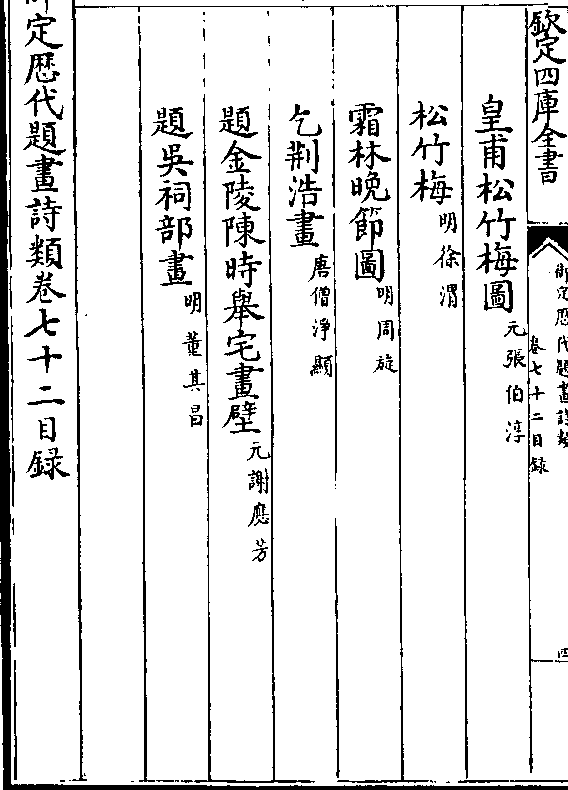 欽定四庫全書
御定歷代題畫詩類
卷七十二目録
四
皇甫松竹梅圖元張伯淳
松竹梅明徐渭
霜林晚節圖明周旋
乞荆浩畫唐僧淨顯
題金陵陳時舉宅畫壁元謝應芳
題吳祠部畫明董其昌
御定歷代題畫詩類卷七十二目録